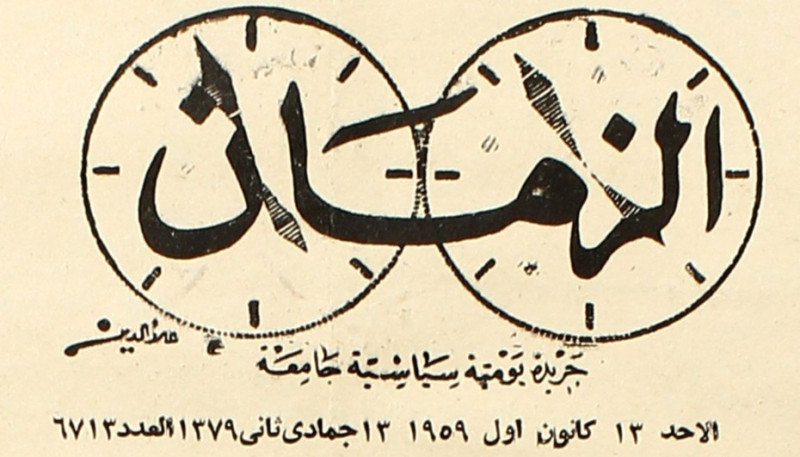 الزمان
علاءالدين
جريدة يومية سياسية جامعة
الاحد ١٣ كانون اول ١٩٥٩ ١٣ جمادى ثانى ١٣٧٩ العدد ٦٧١٣